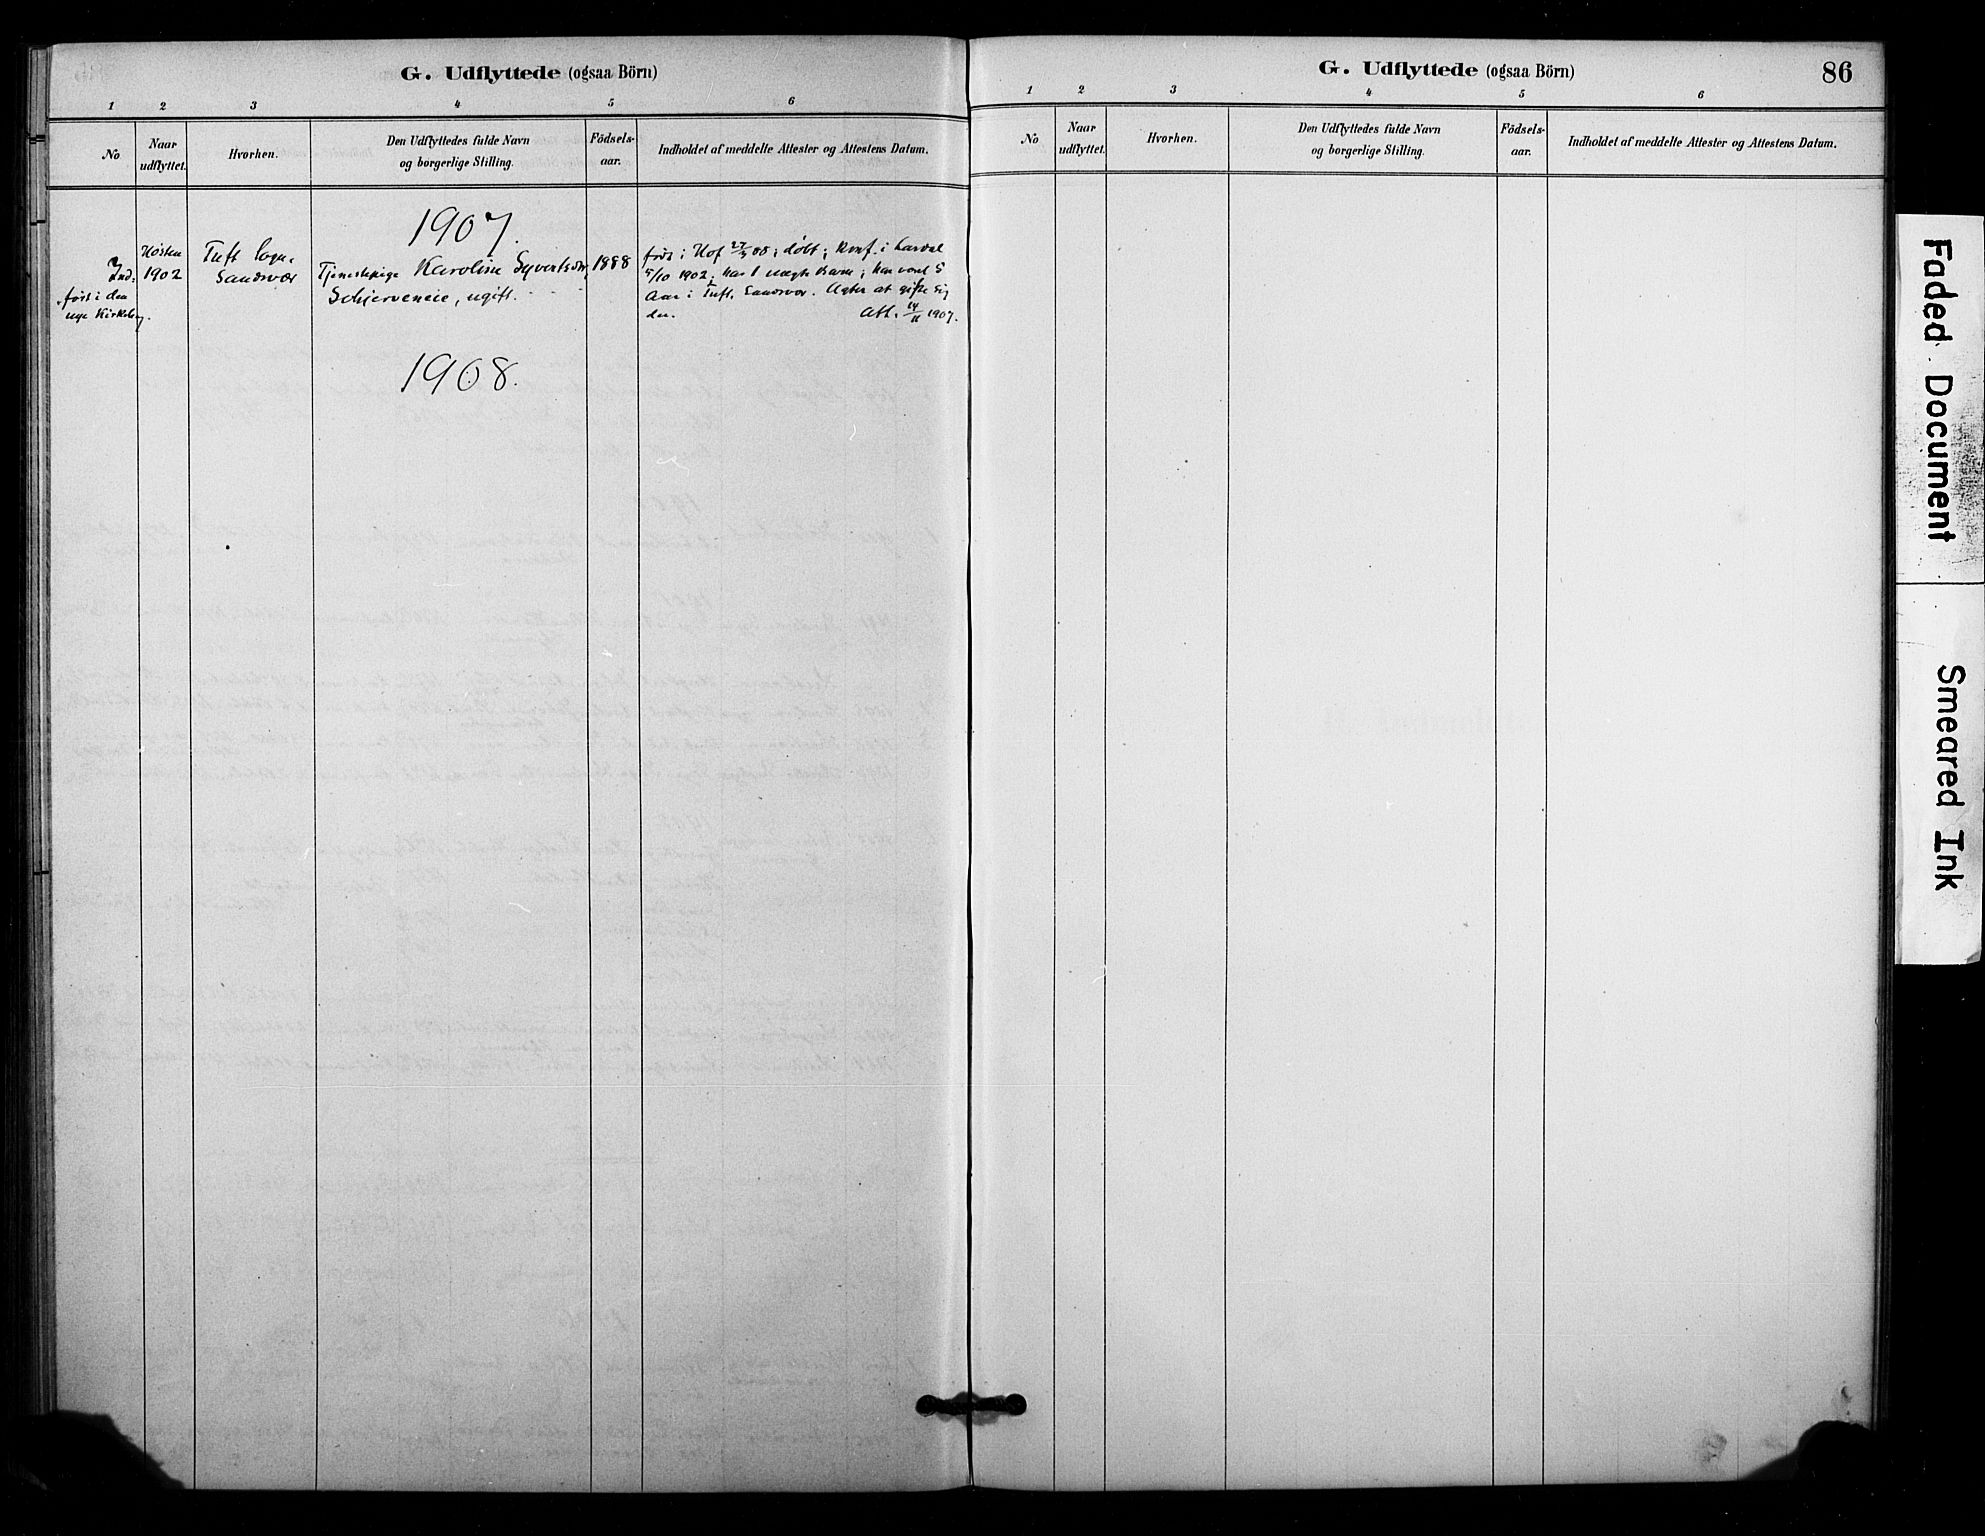 G. Udflyttede (ogsaa Börn)
1 2 3 4 5 6
No
Naar udflyttet.
Hvorhen.
Den Udflyttedes fulde Navn og borgerlige Stilling.
Födsels-aar.
Indholdet af meddelte Attester og Attestens Datum.
1907.
Ind-
ført i den
nye Kirkebog.
Høsten
1902
Tuft Sogn,
Sandsvær
Tjenestepige Karoline Syvertsdtr
Schjerveneie, ugift.
1888
født i Hof 27/ 88; døbt; Konf. i Lardal
5/10 1902; har 1 uægte Barn; har været 5
Aar i Tuft, Sandsvær. Agter at gifte sig
der.
Att. 14/11 1907.
1908.
G. Udflyttede (ogsaa Börn)
86
1 2 3 4 5 6
No
Naar udflyttet.
Hvorhen.
Den Udflyttedes fulde Navn og borgerlige Stilling.
Födsels-aar.
Indholdet af meddelte Attester og Attestens Datum.
Faded Document
Smeared Ink